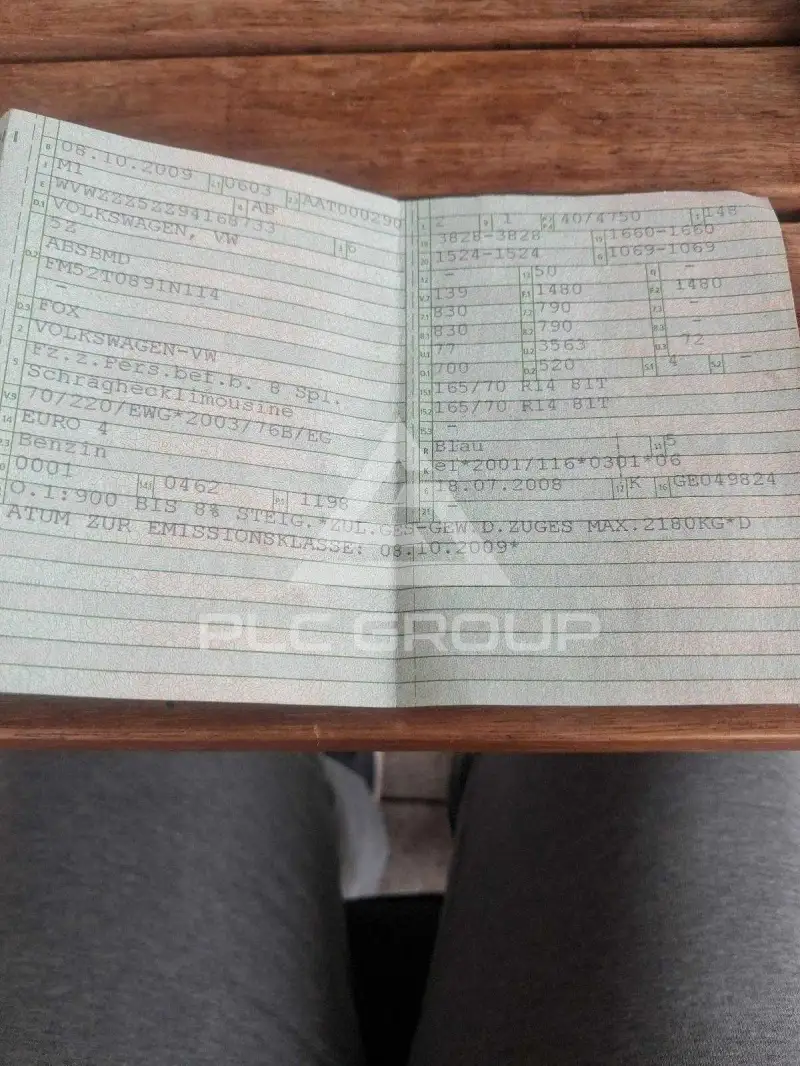 B 08.10.2009 2.1 0603 2.2 AAT000290
J M1 4 AB
E WVWZZZ5ZZ94168733 3 6
D.1 VOLKSWAGEN, VW
5Z
D.2 ABSBMD
FM52T0891N114
-
D.3 FOX
2 VOLKSWAGEN-VW
5 Fz.z.Pers.bef.b. 8 Spl.
Schräghecklimousine
V.9 70/220/EWG*2003/76B/EG
14 EURO 4
P.3 Benzin
10 0001 14.1 0462 P.1 1198
L 2 9 1 P.2 P.4 4074/4750 T 148
18 3828-3828 19 1660-1660
20 1524-1524 G 1069-1069
12 - 13 50 Q -
V.7 139 F.1 1480 F.2 1480
7.1 830 7.2 790 7.3 -
8.1 830 8.2 790 8.3 -
U.1 77 U.2 3563 U.3 72
O.1 700 O.2 520 S.1 4 S.2 -
15.1 165/70 R14 81T
15.2 165/70 R14 81T
15.3 -
R Blau 11 5
K e1*2001/116*0301*06
6 18.07.2008 17 K 16 GE049824
21 -
O.1:900 BIS 8% STEIG.*ZUL.GES-GEW.D.ZUGES MAX.2180KG*D
ATUM ZUR EMISSIONSKLASSE: 08.10.2009*
PLC GROUP